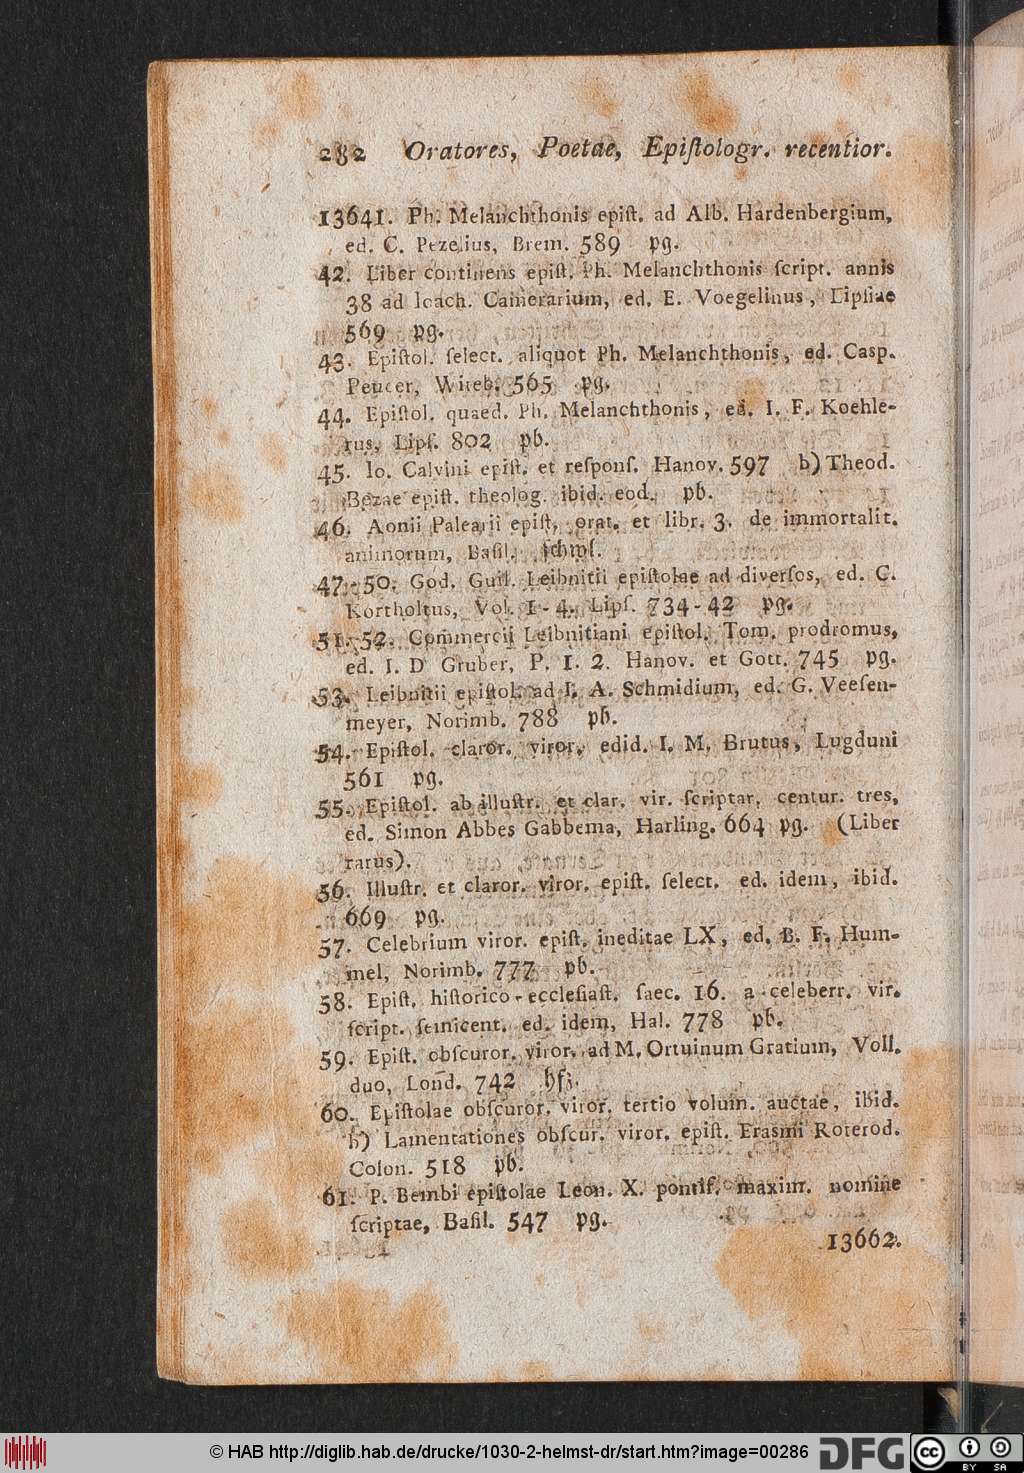 282 Oratores, Poetae, Epiſtologr. recentior.
13641. Ph. Melanchthonis epiſt. ad Alb. Hardenbergium,
ed. C. Pezelius, Brem. 589 pg.
42. Liber continens epiſt. Ph. Melanchthonis ſcript. annis
38 ad Ioach. Camerarium, ed. E. Voegelinus, Lipſiae
569 pg.
43. Epiſtol. ſelect. aliquot Ph. Melanchthonis, ed. Casp.
Peucer, Witeb. 565 pg.
44. Epiſtol. quaed. Ph. Melanchthonis, ed. I. F. Koehle-
rus, Lipſ. 802 pb.
45. Io. Calvini epiſt. et reſponſ. Hanov. 597 b) Theod.
Bezae epiſt. theolog. ibid. eod. pb.
46. Aonii Palearii epiſt. orat. et libr. 3. de immortalit.
animorum, Baſil. ſchwſ.
47-50. God. Guil. Leibnitii epiſtolae ad diverſos, ed. C.
Kortholtus, Vol. 1-4. Lipſ. 734-42 pg.
51. 52. Commercii Leibnitiani epiſtol. Tom. prodromus,
ed. I. D Gruber, P. 1. 2. Hanov. et Gott. 745 pg.
53. Leibnitii epiſtol. ad I. A. Schmidium, ed. G. Veeſen-
meyer, Norimb. 788 ph.
54. Epiſtol. claror. viror. edid. I. M. Brutus, Lugduni
561 pg.
55. Epiſtol. ab illuſtr. et clar. vir. ſcriptar. centur. tres,
ed. Simon Abbes Gabbema, Harling. 664 pg. (Liber
rarus).
56. Illuſtr. et claror. viror. epiſt. ſelect. ed. idem, ibid.
669 pg.
57. Celebrium viror. epiſt. ineditae LX, ed. B. F. Hum-
mel, Norimb. 777 pb.
58. Epiſt. hiſtorico-eccleſiaſt. ſaec. 16. a celeberr. vir.
ſcript. ſemicent. ed. idem, Hal. 778 pb.
59. Epiſt. obſcuror. viror. ad M. Ortuinum Gratium, Voll.
duo, Lond. 742 hfz.
60. Epiſtolae obſcuror. viror. tertio volum. auctae, ibid.
b) Lamentationes obſcur. viror. epiſt. Erasmi Roterod.
Colon. 518 pb.
61. P. Bembi epiſtolae Leon. X. pontif. maxim. nomine
ſcriptae, Baſil. 547 pg.
13662.
© HAB http://diglib.hab.de/drucke/1030-2-helmst-dr/start.htm?image=00286
DFG
CC BY SA